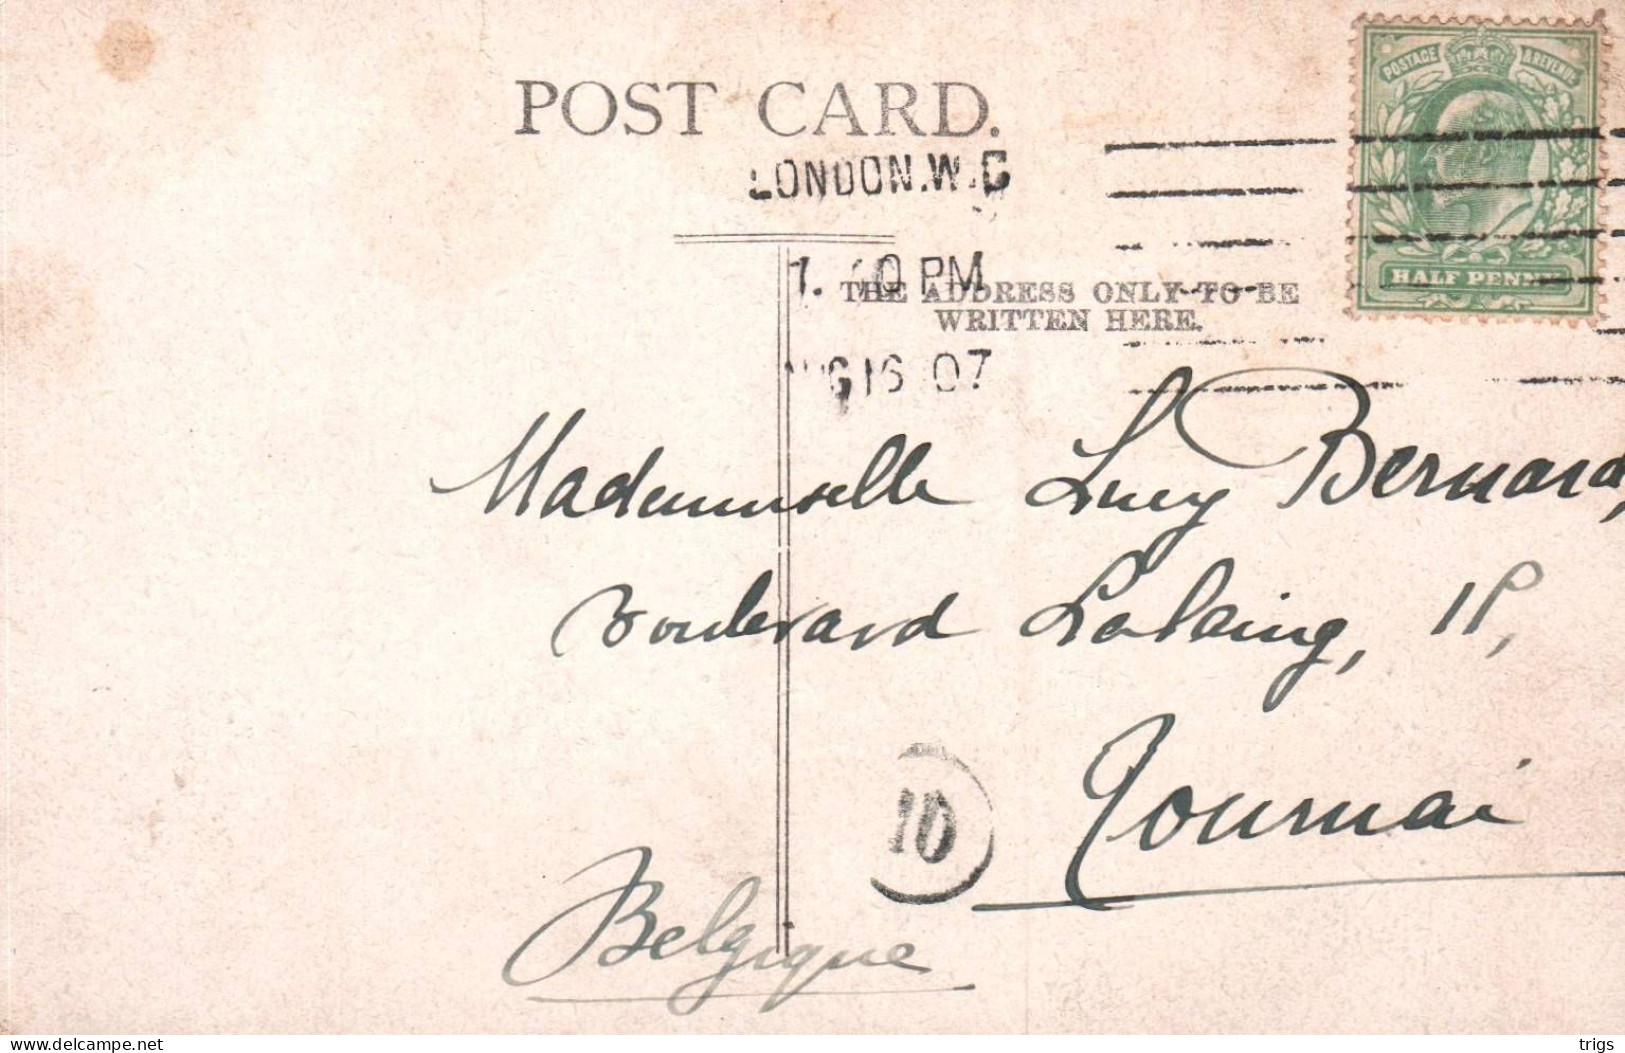 POST CARD.
POSTAGE & REVENUE
LONDON.W.C
PM
THE ADDRESS ONLY TO BE
WRITTEN HERE.
HALF PENNY
16 07
Mademoiselle Lucy Bernard,
Boulevard Lalaing,
Tournai
10
Belgique
delcampe.net
trigs